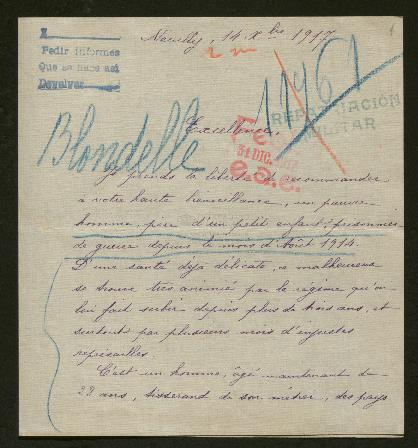 Neuilly, 14 Xbre 1917
1
Pedir informes
Que se hace así
Devolver
2 m
11461
REPATRIACIÓN
MILITAR
31 DIC.
Blondelle
Excellence,
Je prends la liberté de recommander
à votre haute bienveillance, un pauvre
homme, père d'un petit enfant, prisonnier
de guerre depuis le mois d'Août 1914.
D'une santé déjà délicate, ce malheureux
se trouve très anémié par le régime qu'on
lui fait subir depuis plus de trois ans, et
surtout par plusieurs mois d'injustes
représailles
C'est un homme, âgé maintenant de
28 ans, tisserand de son métier, des pays